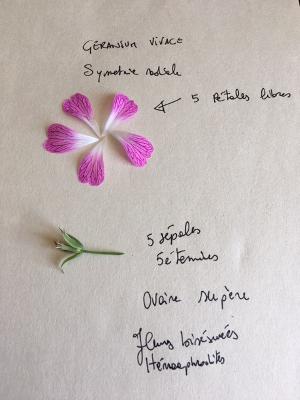 GÉRANIUM VIVACE
Symétrie radiale
5 Pétales libres
5 sépales
5 étamines
Ovaire supère
Fleurs
Hermaphrodites